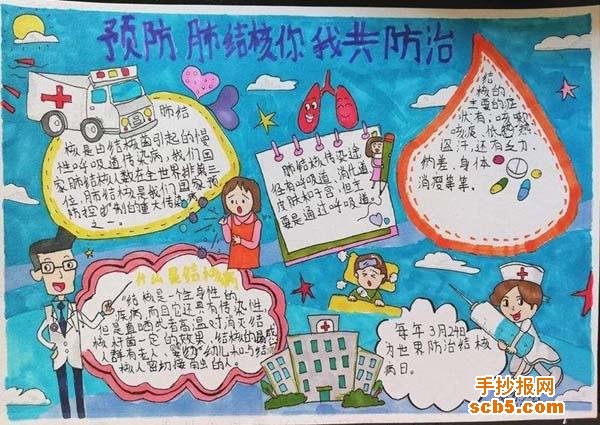 预防肺结核你我共防治
肺结
核是由结核菌引起的慢
性呼吸道传染病,我们国
家肺结核人数在全世界排第三
位,肺结核是我们国家预
防控制的重大传染病
之一.
肺结核传染途
径有呼吸道,消化道
皮肤和子宫,但主
要是通过呼吸道.
结
核的
主要的症
状有,咳嗽
咳痰,低热
盗汗,还有乏力,
纳差,身体
消瘦等等.
什么是结核病
"结核是一个全身性的
疾病,而且它还具有传染性
但是直晒或者高温对消灭结
核杆菌一定的效果,结核的易感
人群有老人,婴幼幼儿和与结
核人密切接触的人.
每年3月24日
为世界防治结核
病日。
手抄报网
scb5.com